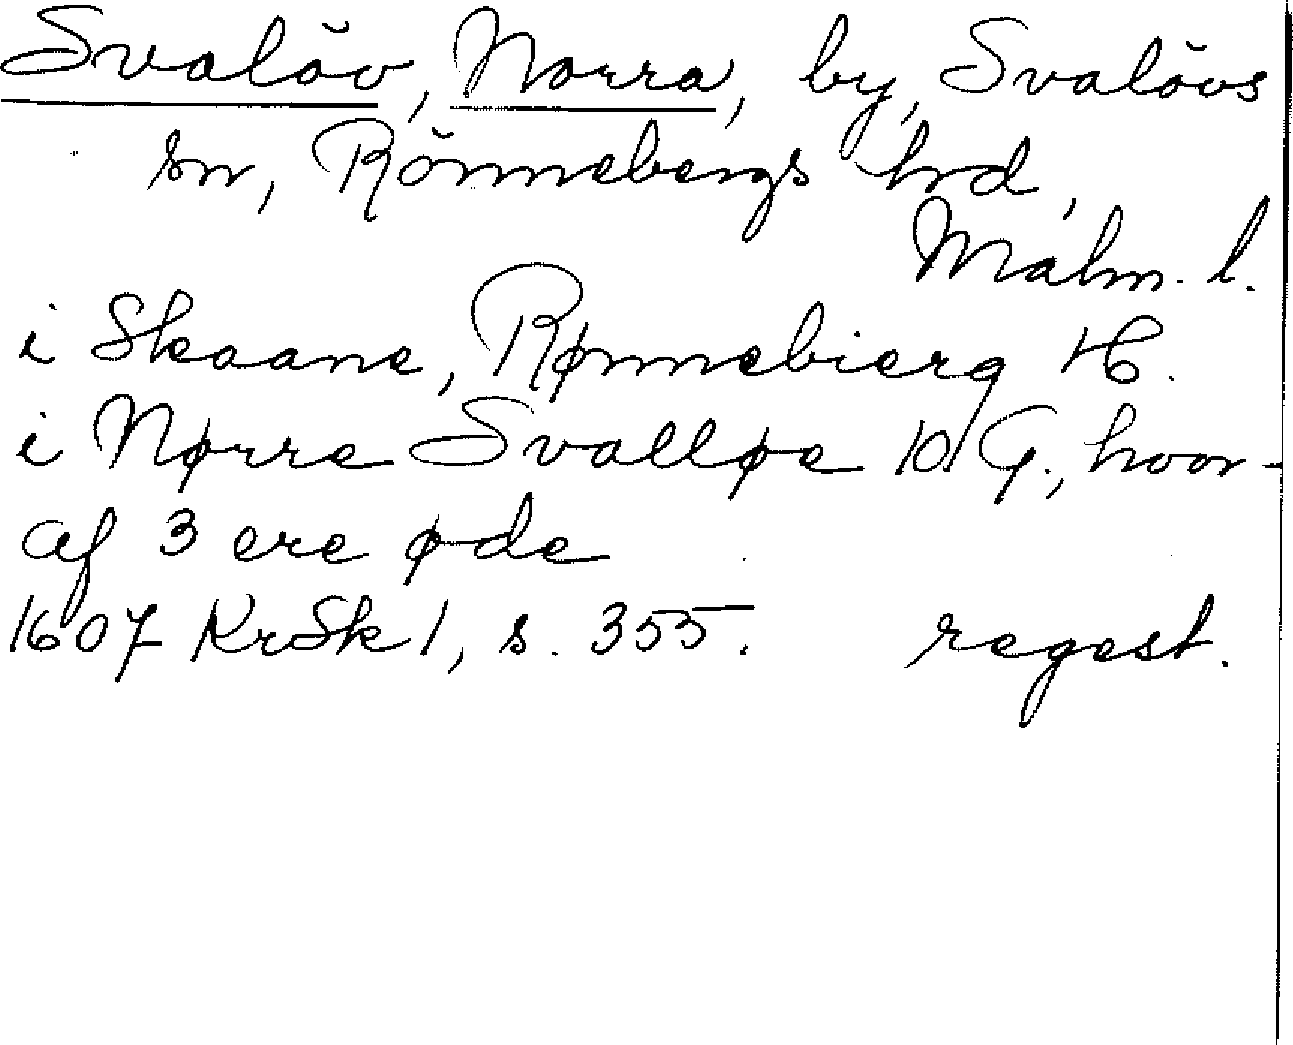 Svalöv, Norra, by, Svalövs
sn, Rönnebergs hrd,
Malm. l.
i Skaane, Rønnebierg H.
i Nørre Svalløe 10 G., hvor-
af 3 ere øde
1607 KrSk 1, s. 355. regest.